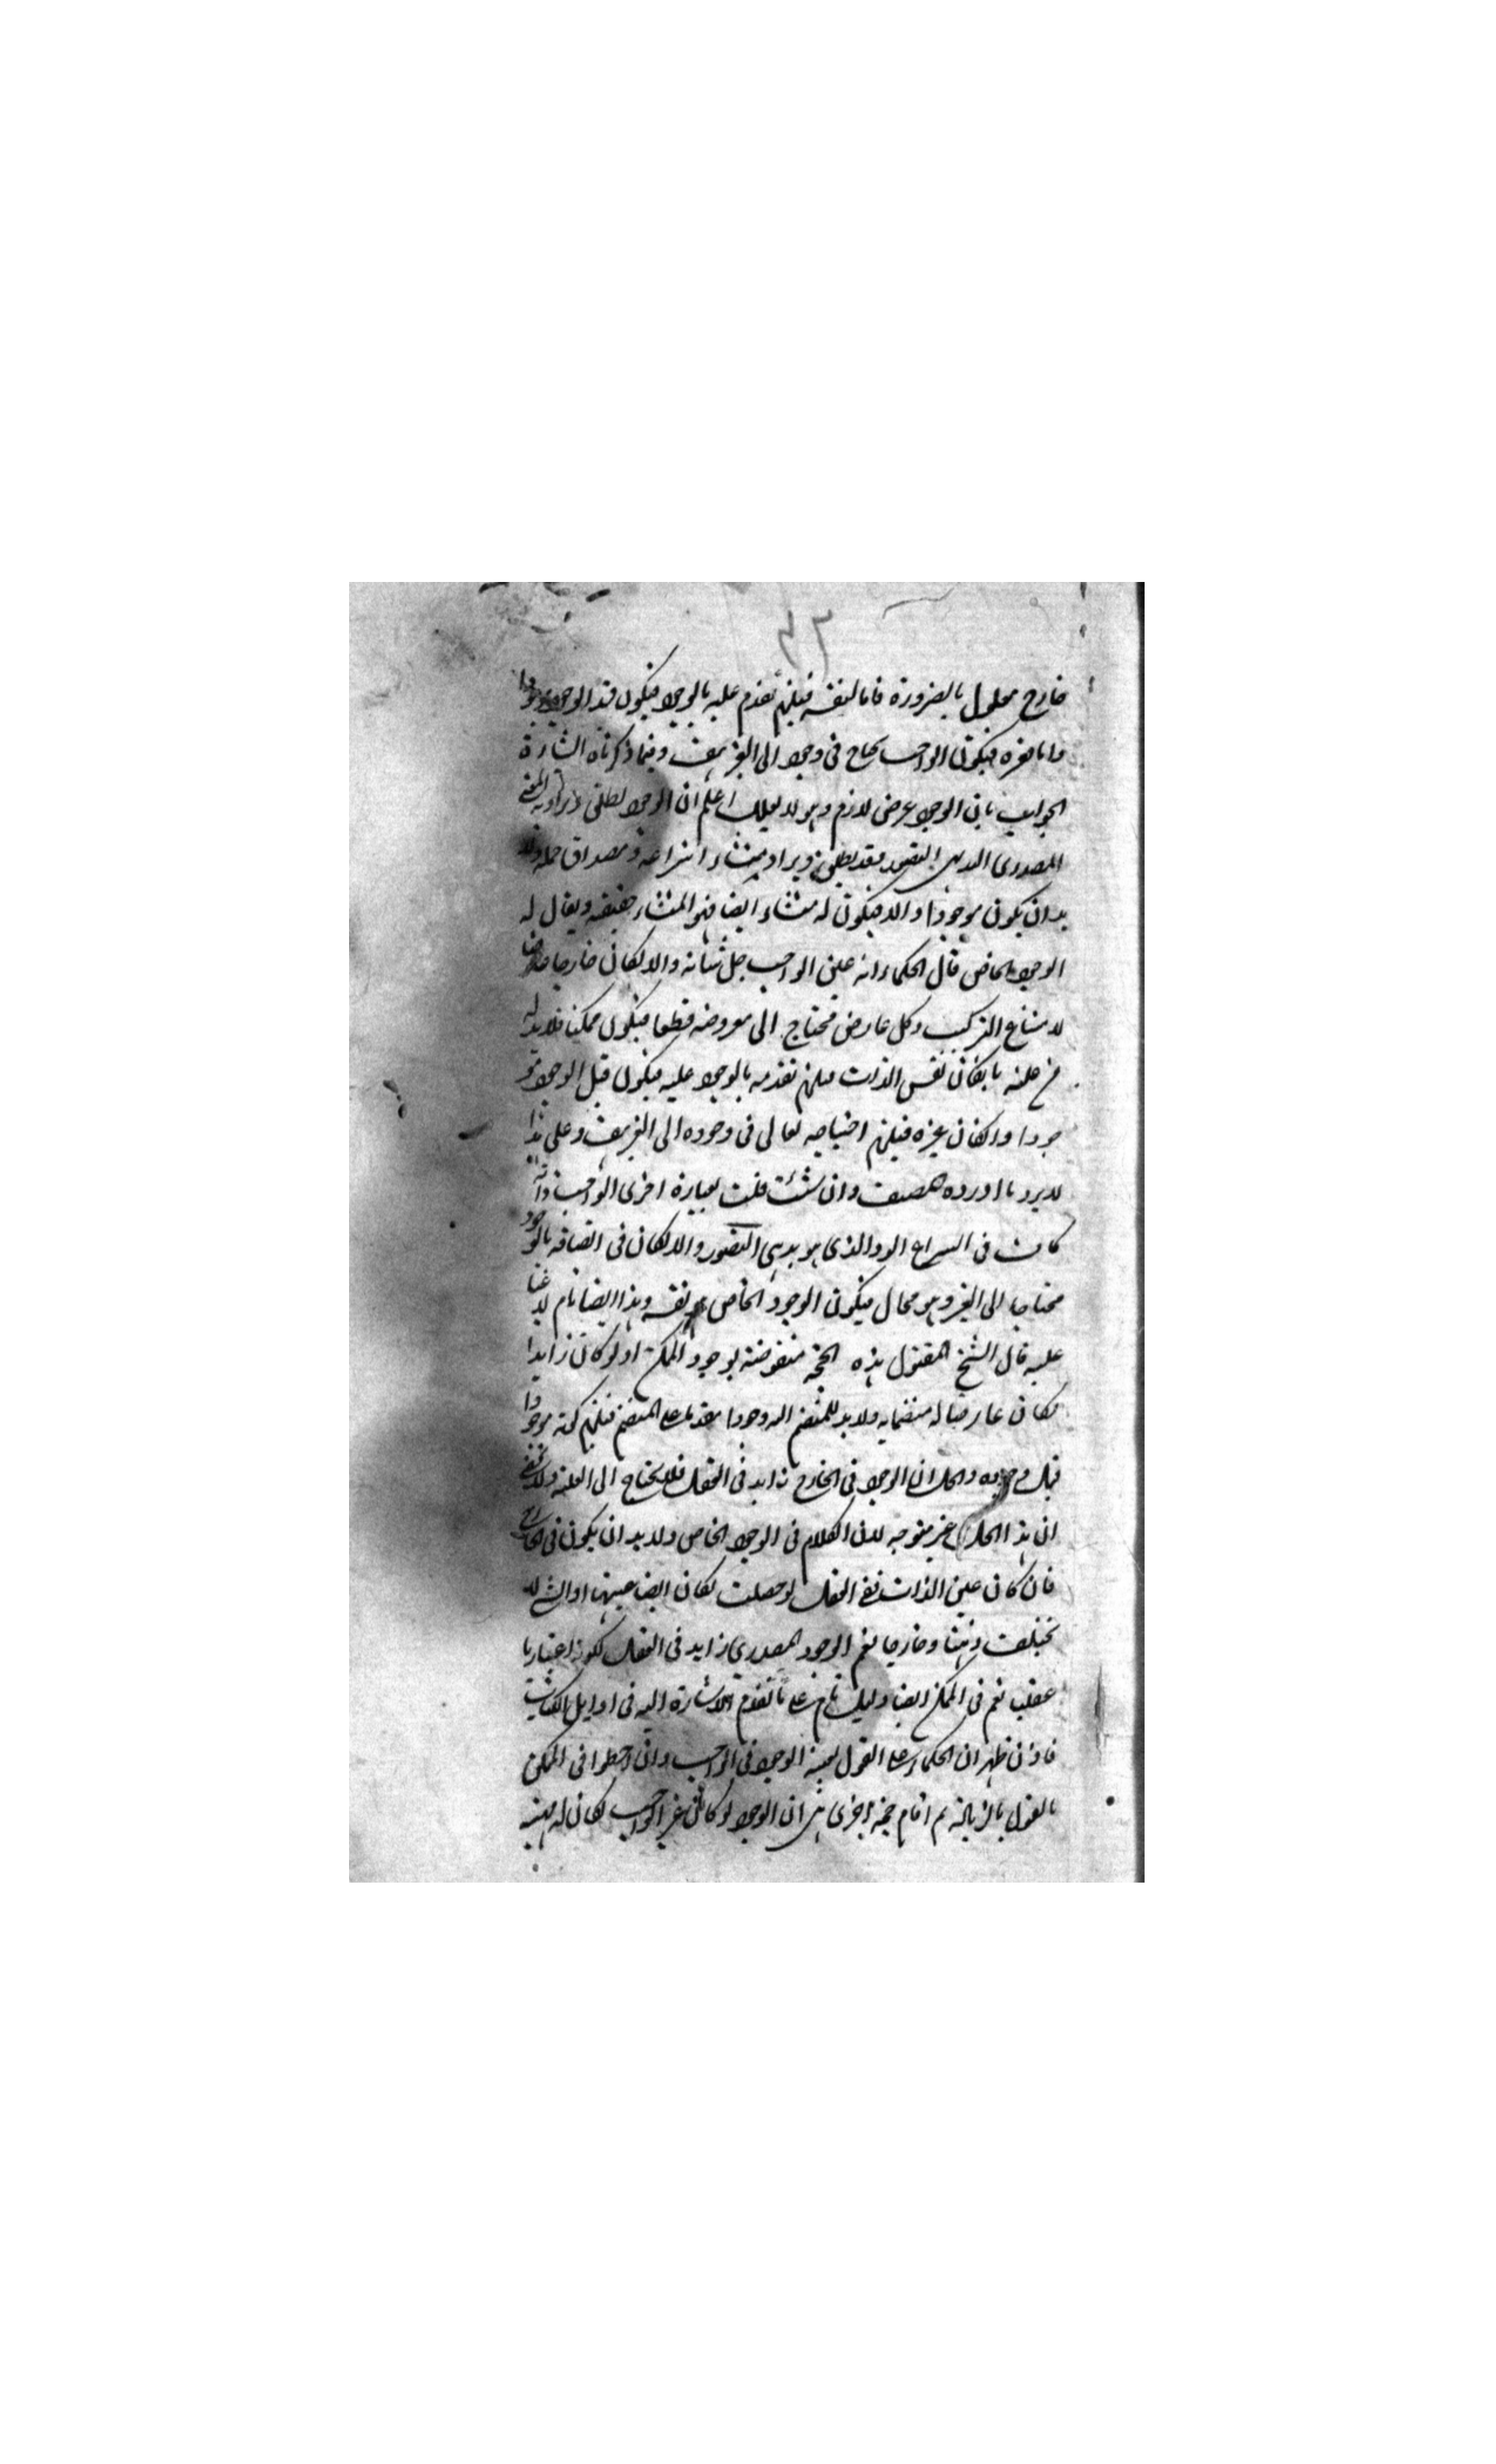 ٤٢
خارج معلول بالضرورة فاما لنفسه فيلزم تقدم عليه بالوجود فيكون قبل الوجود موجودا
واما لغيره فيكون الواجب يحتاج فى وجوده الى الغير هف وفيما ذكرناه اشارة
الجواب بان الوجود عرض لازم وهو لا يعلل اعلم ان الوجود يطلق ويراد به المعنى
المصدرى البديهى التصور وقد يطلق ويراد منشاء انتزاعه ومصداق حمله ولا
بد ان يكون موجودا والا فيكون له منشاء ايضا فهو المنشاء حقيقه ويقال له
الوجود الخاص قال الحكماء انه عين الواجب جل شانه والا لكان خارجا عارضا
لامتناع التركيب وكل عارض فمحتاج الى معروضه قطعا فيكون ممكنا فلا بد له
من علته فان كان نفس الذات فيلزم تقدمه بالوجود عليه فيكون قبل الوجود مو
جودا وان كان غيره فيلزم احتياجه تعالى فى وجوده الى الغير هف وعلى هذا
لا يرد ما اورده المصنف وان شئت قلت بعبارة اخرى الواجب ذاته
كاف فى انتزاع الوجود الذى هو بديهى التصور والا لكان فى اتصافه بالوجود
محتاجا الى الغير وهو محال فيكون الوجود الخاص هو نفسه وهذا ايضا تام لا غبار
عليه قال الشيخ المقتول هذه الحجة منقوضة بوجود الممكن اذ لو كان زايدا
لكان عارضا له منضما به ولا بد للمنضم اليه وجودا مقدما على المنضم فيلزم كونه موجودا
قبل وجوده والحل ان الوجود فى الخارج زايد فى العقل فلا يحتاج الى العلة ولا يخفى
ان هذا الحل غير متوجه لان الكلام فى الوجود الخاص ولا بد ان يكون فى الخارج
فان كان عين الذات ففى العقل لو حصلت لكان ايضا عينها اذ الشئ لا
يختلف ذهنا وخارجا نعم الوجود المصدرى زايد فى العقل لكونه اعتباريا
عقليا نعم فى الممكن ايضا دليل تام على ما تقدم الاشارة اليه فى اوايل الكتاب
فاذن ظهر ان الحكماء على القول بعينية الوجود فى الواجب وان اضطروا فى الممكن
بالقول بالزيادة ثم اقام حجة اخرى هى ان الوجود لو كان غير الواجب لكان له مهية